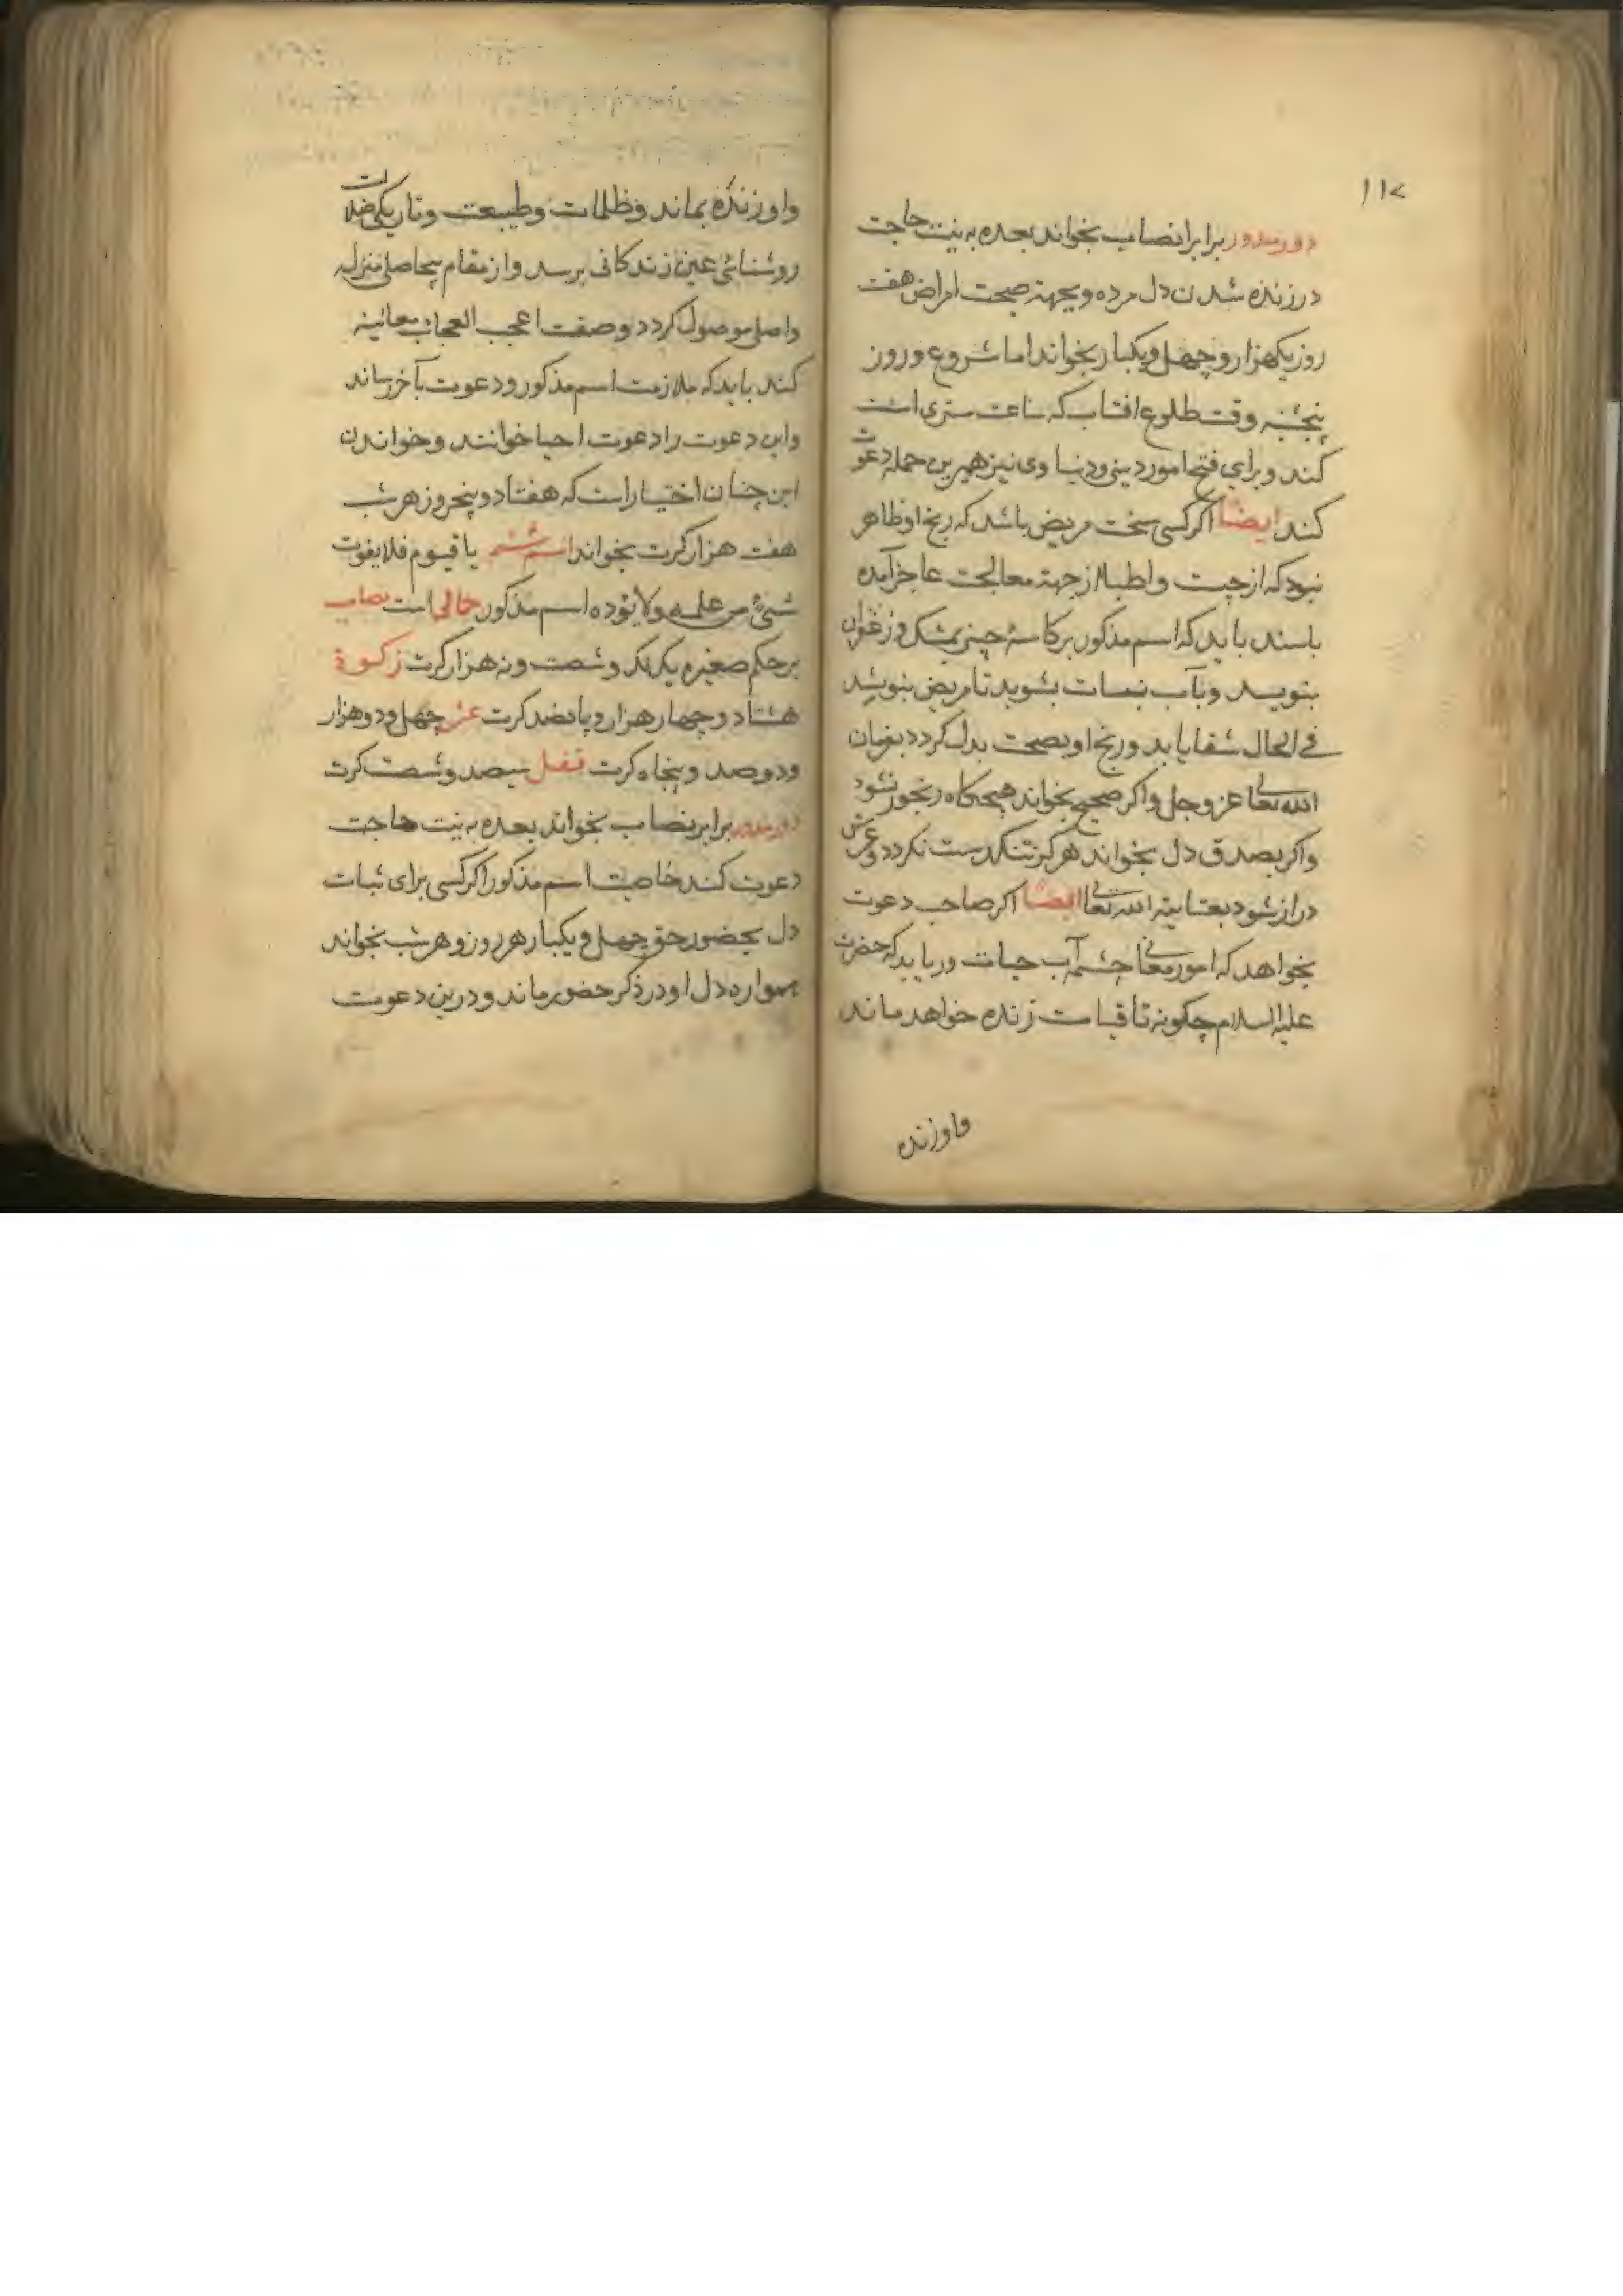 ۱۱۷
دور مدور برابر نصاب بخواند بعده به نیت حاجت
در زنده شدن دل مرده و بجهة صحت امراض هفت
روز یکهزار و چهل و یکبار بخواند اما شروع و روز
پنجشنبه وقت طلوع افتاب که ساعت ستری است
کند و برای فتح امور دینی و دنیاوی نیز همبرین جمله دعوت
کند ایضا اکر کسی سخت مریض باشد که رنج او ظاهر
نبود که از چیست و اطبا از جهة معالجت عاجز آمده
باسند باید که اسم مذکور بر کاسهٔ چینی بمشک و زعفران
بنویسد و بآب نبات بشوید تا مریض بنوشد
فی الحال شفا یابد و رنج او بصحت بدل کردد بفرمان
الله تعالی عز و جل و اکر صحیح بخواند هیچکاه رنجور نشود
واکر بصدق دل بخواند هرکز تنکدست نکردد و عمرش
دراز شود بعنایة الله تعالی ایضا اکر صاحب دعوت
بخواهد که امور معانی چشمه آب حیات دریابد که حضرت
علیه السلام چکونه تا قیامت زنده خواهد ماند
واو زنده
واو زنده بماند و ظلمات و طبیعت و تاریکی ضلالت
روشنائی عین زندکانی برسد و از مقام بیحاصلی بمنزله
واصلی موصول کردد و صفت اعجب العجاب معائینه
کند باید که ملازمت اسم مذکور و دعوت بآخر رساند
واین دعوت را دعوت احیا خوانند و خواندن
این چنان اختیار است که هفتاد و پنج روز هر شب
هفت هزار کرت بخواند اسم ششم یا قیوم فلا یفوت
شیئ من علمه ولا یؤده اسم مذکور جمالی است نصاب
بر حکم صغیره یک لک و شصت و نه هزار کرت زکوة
هشتاد و چهار هزار و پانصد کرت عشر چهل و دو هزار
ودوصد و پنجاه کرت قفل سیصد و شصت کرت
دور مدور برابر نصاب بخواند بعده به نیت حاجت
دعوت کند خاصیت اسم مذکور اکر کسی برای ثبات
دل بحضور حق چهل و یکبار هر روز و هر شب بخواند
همواره دل او در ذکر حضور ماند و درین دعوت